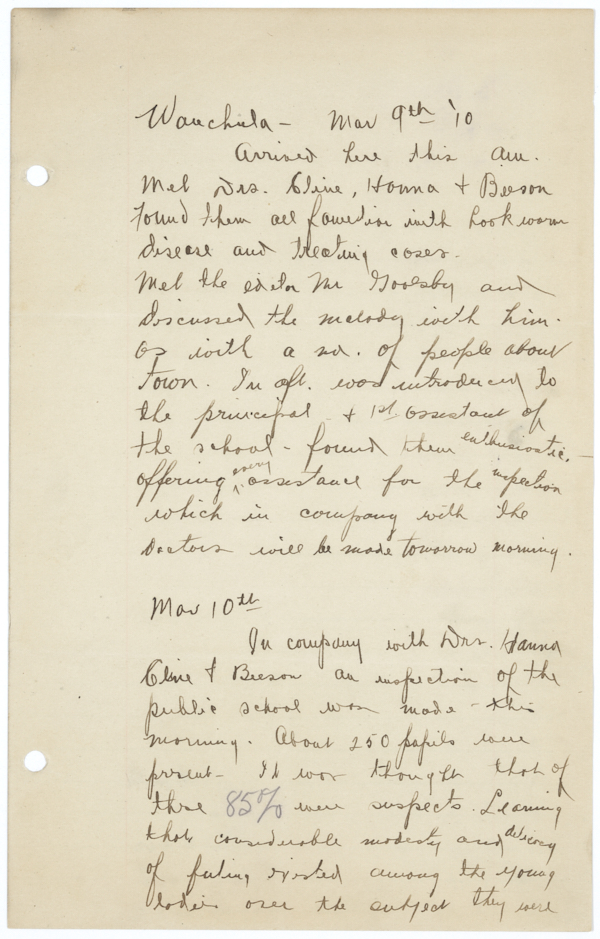 Wauchula - Mar 9th '10
Arrived here this am.
Met Drs. Cline, Hanna & Beeson
found them all familiar with hookworm
disease and treating cases.
Met the editor Mr Goolsby and
discussed the malady with him.
as with a no. of people about
town. In aft. was introduced to
the principal & 1st assistant of
the school - found them enthusiastic.
offering every assistance for the inspection
which in company with the
Doctors will be made tomorrow morning.
Mar 10th
In company with Drs. Hanna
Cline & Beeson an inspection of the
public school was made this
morning. About 250 pupils were
present - It was thought that of
these 85% were suspects. Learning
that considerable modesty and delicacy
of feeling existed among the young
ladies over the subject they were